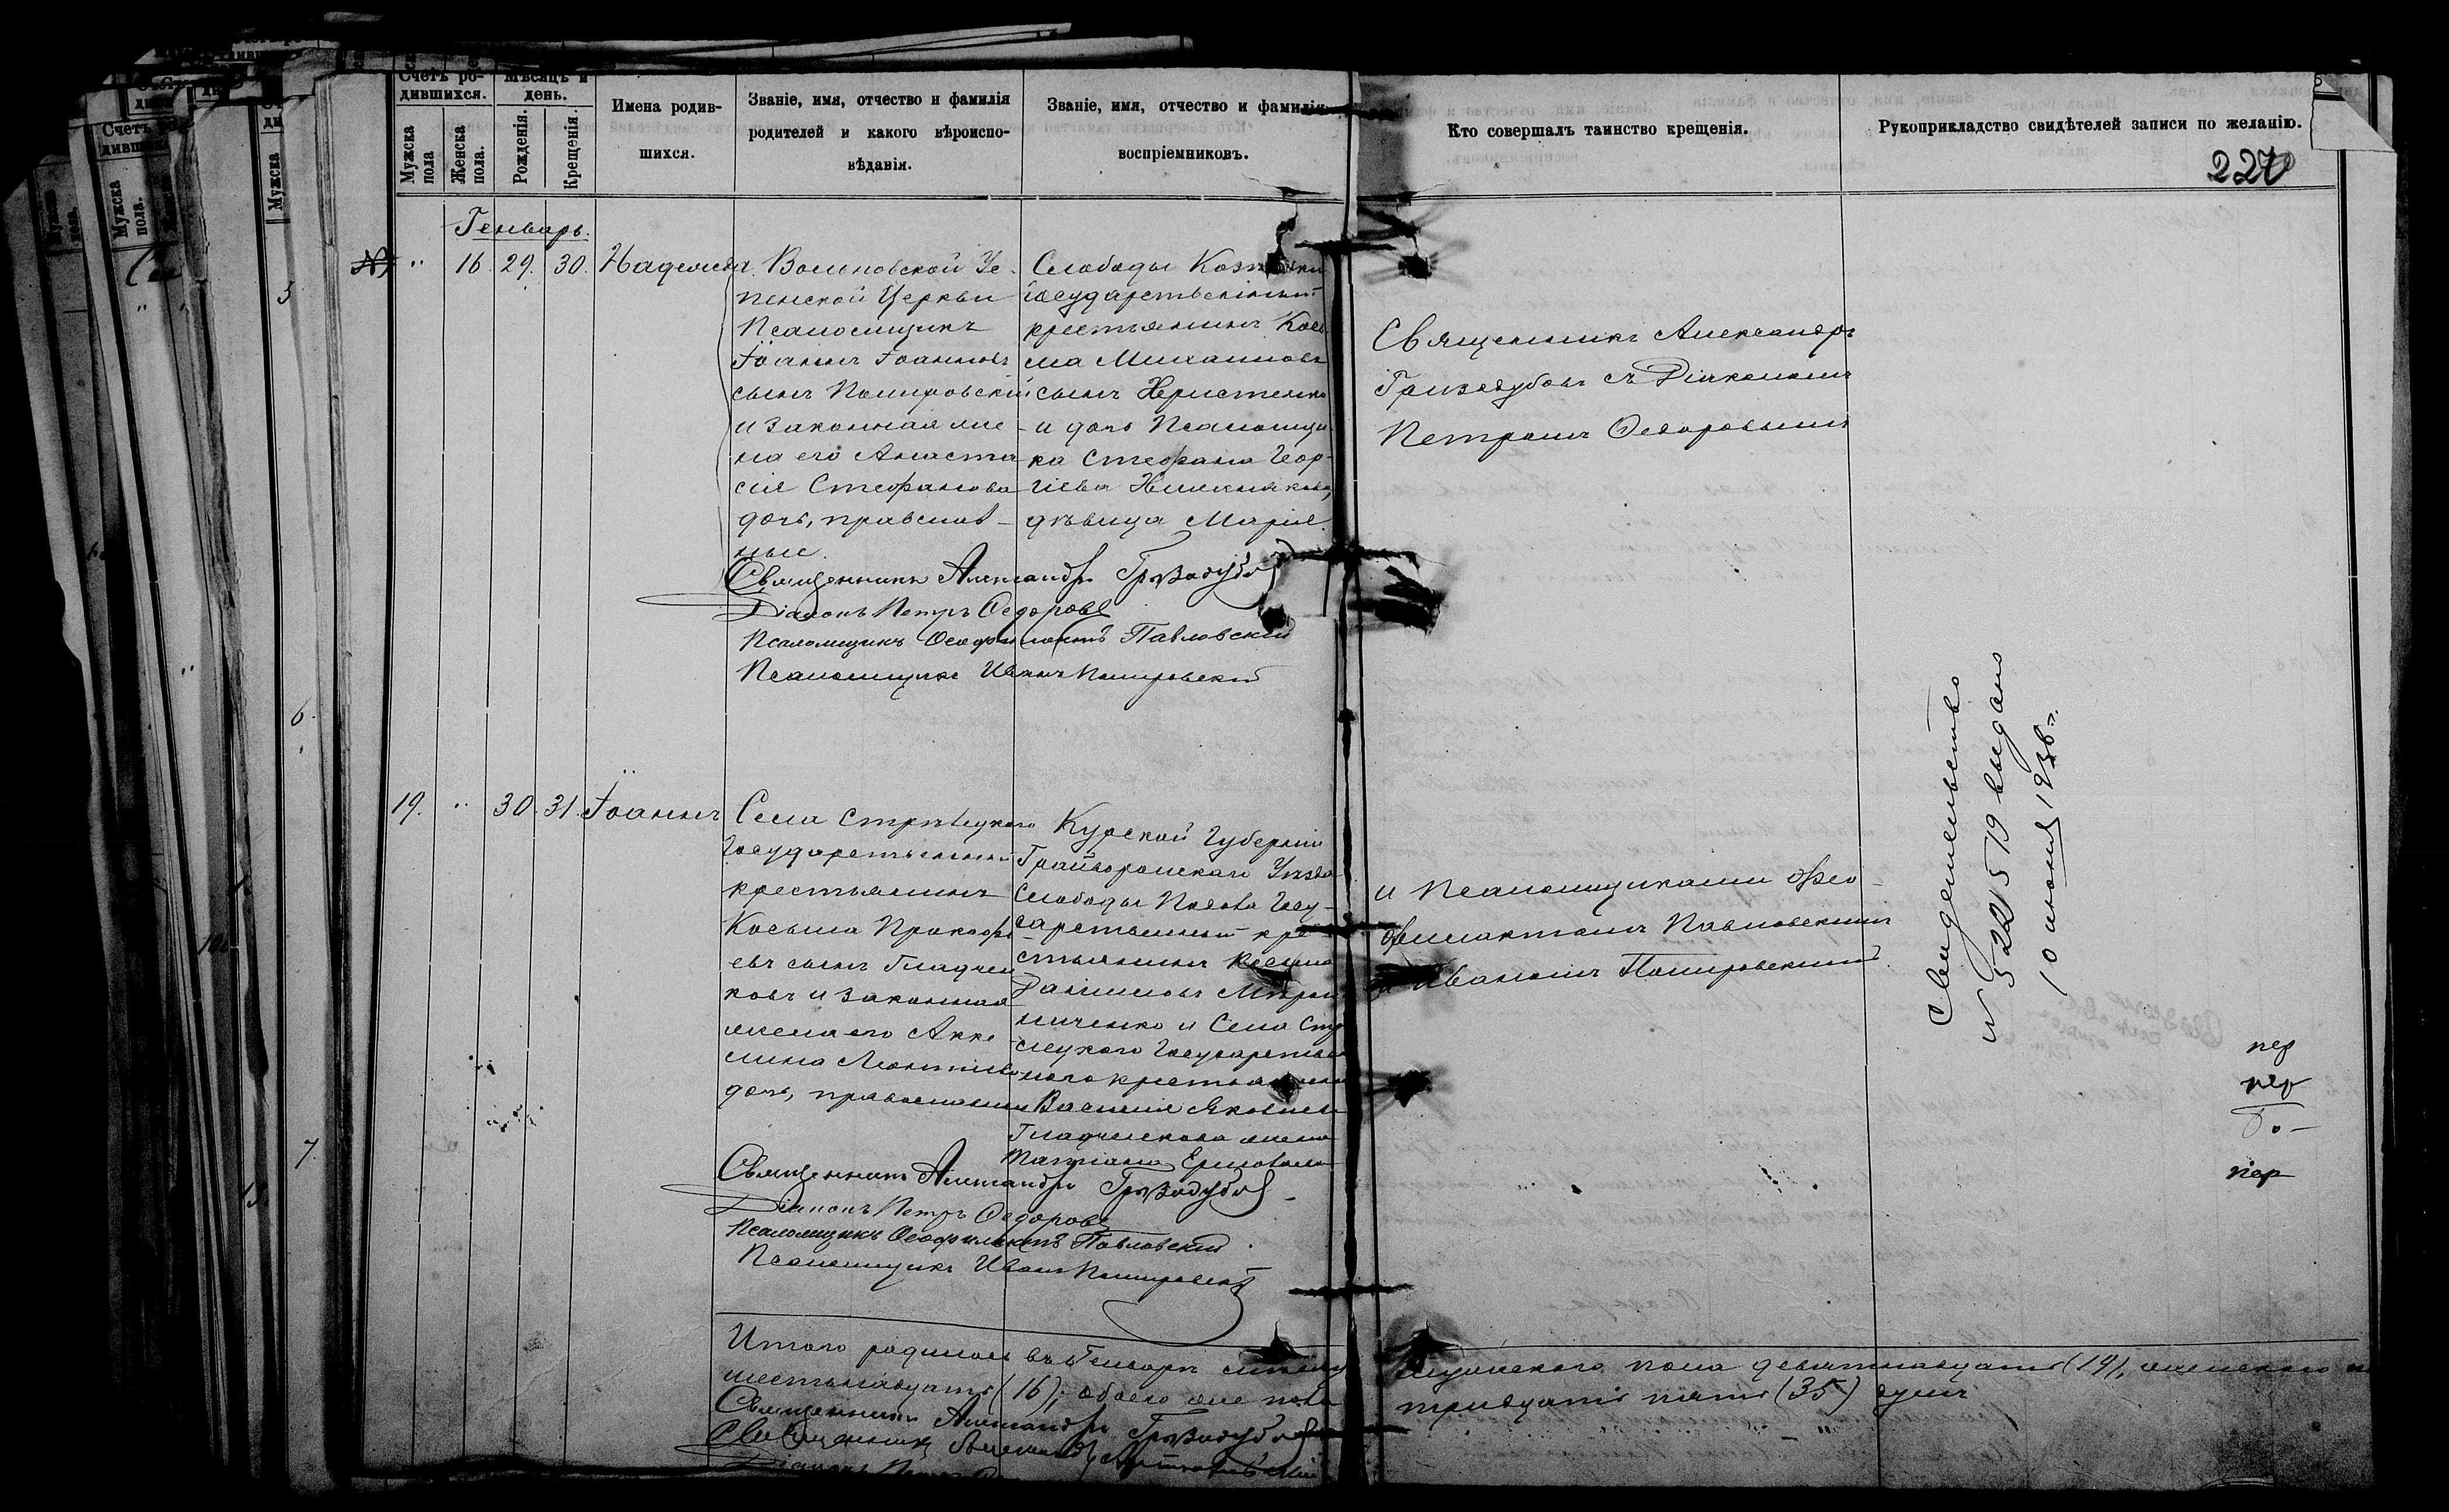 Счетъ ро-
дившихся.
Мѣсяцъ и
день.
Мужска
пола
Женска
пола.
Рожденія.
Крещенія.
Имена родив-
шихся.
Званіе, имя, отчество и фамилія
родителей и какого вѣроиспо-
вѣданія.
Званіе, имя, отчество и фамилія
воспріемниковъ.
Кто совершалъ таинство крещенія.
Рукоприкладство свидѣтелей записи по желанію.
227
Генварь.
16. 29. 30. Надежда
пенской Церкви
Псаломщикъ
Іоаннъ Іоанновъ
сынъ Помировскій
и законная же-
на его Анаста-
сія Стефанова
дочь, правслав-
ные.
Слободы
государственный
крестьянинъ Кось
ма Михаиловъ
сынъ Христенко
и дочь Псаломщи-
ка Стефана Геор-
гіева
дѣвица Марія
Священникъ Александръ
съ Діакономъ
Петромъ Ѳедоровымъ
Священникъ Александръ
Діаконъ Петръ Ѳедоровъ
Псаломщикъ Ѳеофилактъ Павловскій
Псаломщикъ Иванъ Помировскій
19. " 30. 31. Іоаннъ
Села Стрѣлецкаго
Государственный
крестьянинъ
Косьма Прокофь
евъ сынъ Гладчен
ковъ и законная
жена его Акке-
лина Леонтіева
дочь, православные
Курской Губерніи
Грайворонскаго Уѣзда
Слободы Государственный кре-
стьянинъ Косьма
Даниловъ Мирош
ниченко и Села Стрѣ
лецкаго Государствен
наго крестьянина
Василія Яковлева
Гладченкова жена
Татіана Ермолаева
и Псаломщиками Ѳео-
филактомъ Павловскимъ
и Иваномъ Помировскимъ.
Свидетельство
N 522519 выдано
10 июня 1936 г.
пер
пер
То-
пер
Священникъ Александръ
Діаконъ Петръ Ѳедоровъ
Псаломщикъ Ѳеофилактъ Павловскій
Псаломщикъ Иванъ Помировскій
Итого родилось въ Генварѣ мѣсяцѣ мужескаго пола девятнадцать (19), женскаго
шестьнадцать (16); обоего же пола тридцать пять (35) душъ
Священникъ Александръ
Священникъ